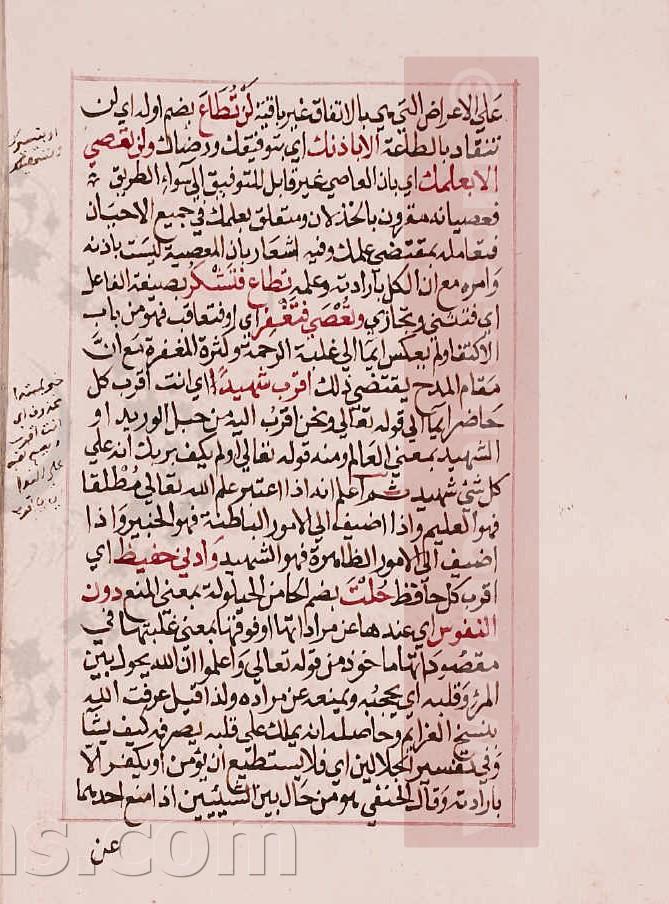 علي الاعراض التي هي بالاتفاق غير باقية لن تطاع بضم اوله اي لن
تنقاد بالطاعة الا باذنك اي بتوفيقك ورضاك ولن تعصي
الا بعلمك اي بان العاصي غير قابل للتوفيق الي سواء الطريق
فعصيانه مقرون بالخذلان ومتعلق بعلمك في جميع الاحيان
فتعامله بمقتضي علمك وفيه اشعار بان المعصية ليست باذنه
وامره مع ان الكل بارادته وعلمه تطاع فتشكر بصيغة الفاعل
اي فتثني وتجازي وتعصي فتغفر اي او فتعاقب فهو من باب
الاكتفا ولم يعكس ايما الي غلبة الرحمة وكثرة المغفرة مع ان
مقام المدح يقتضي ذلك اقرب شهيد اي انت اقرب كل
حاضر ايما الي قوله تعالي ونحن اقرب اليه من حبل الوريد او
الشهيد بمعني العالم ومنه قوله تعالي اولم يكف بربك انه علي
كل شئ شهيد ثم اعلم انه اذا اعتبر علم الله تعالي مطلقا
فهو العليم واذا اضيف الي الامور الباطنة فهو الخبير واذا
اضيف الي الامور الظاهرة فهو الشهيد وادني حفيظ اي
اقرب كل حافظ حلت بضم الحا من الحيلولة بمعني المنع دون
النفوس اي عندها عن مراداتها او فوقها بمعني غلبتها في
مقصوداتها ماخوذ من قوله تعالي واعلموا ان الله يحول بين
المرء وقلبه اي يحجبه ويمنعه عن مراده ولذا قيل عرفت الله
بنسخ العزايم وحاصله انه يملك علي قلبه يصرفه كيف يشا
وفي تفسير الجلالين اي فلا يستطيع ان يؤمن او يكفر الا
بارادته وقال الحنفي هو من حال بين الشيئين اذا منع احدهما
عن